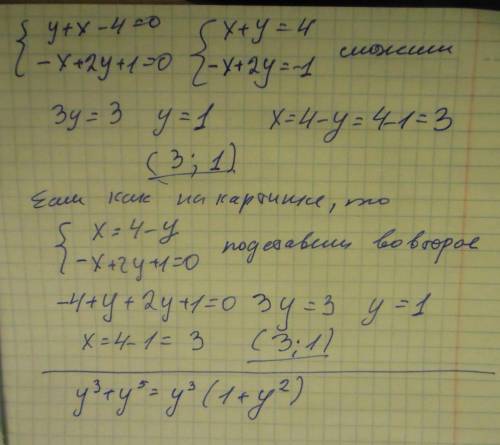 { y+x-4=0 { x+y=4 сложим
-x+2y+1=0 -x+2y=-1
3y=3 y=1 x=4-y=4-1=3
(3;1)
Если как на картинке, то
{ x=4-y
-x+2y+1=0 подставим во второе
-4+y+2y+1=0 3y=3 y=1
x=4-1=3 (3;1)
y³+y⁵=y³(1+y²)